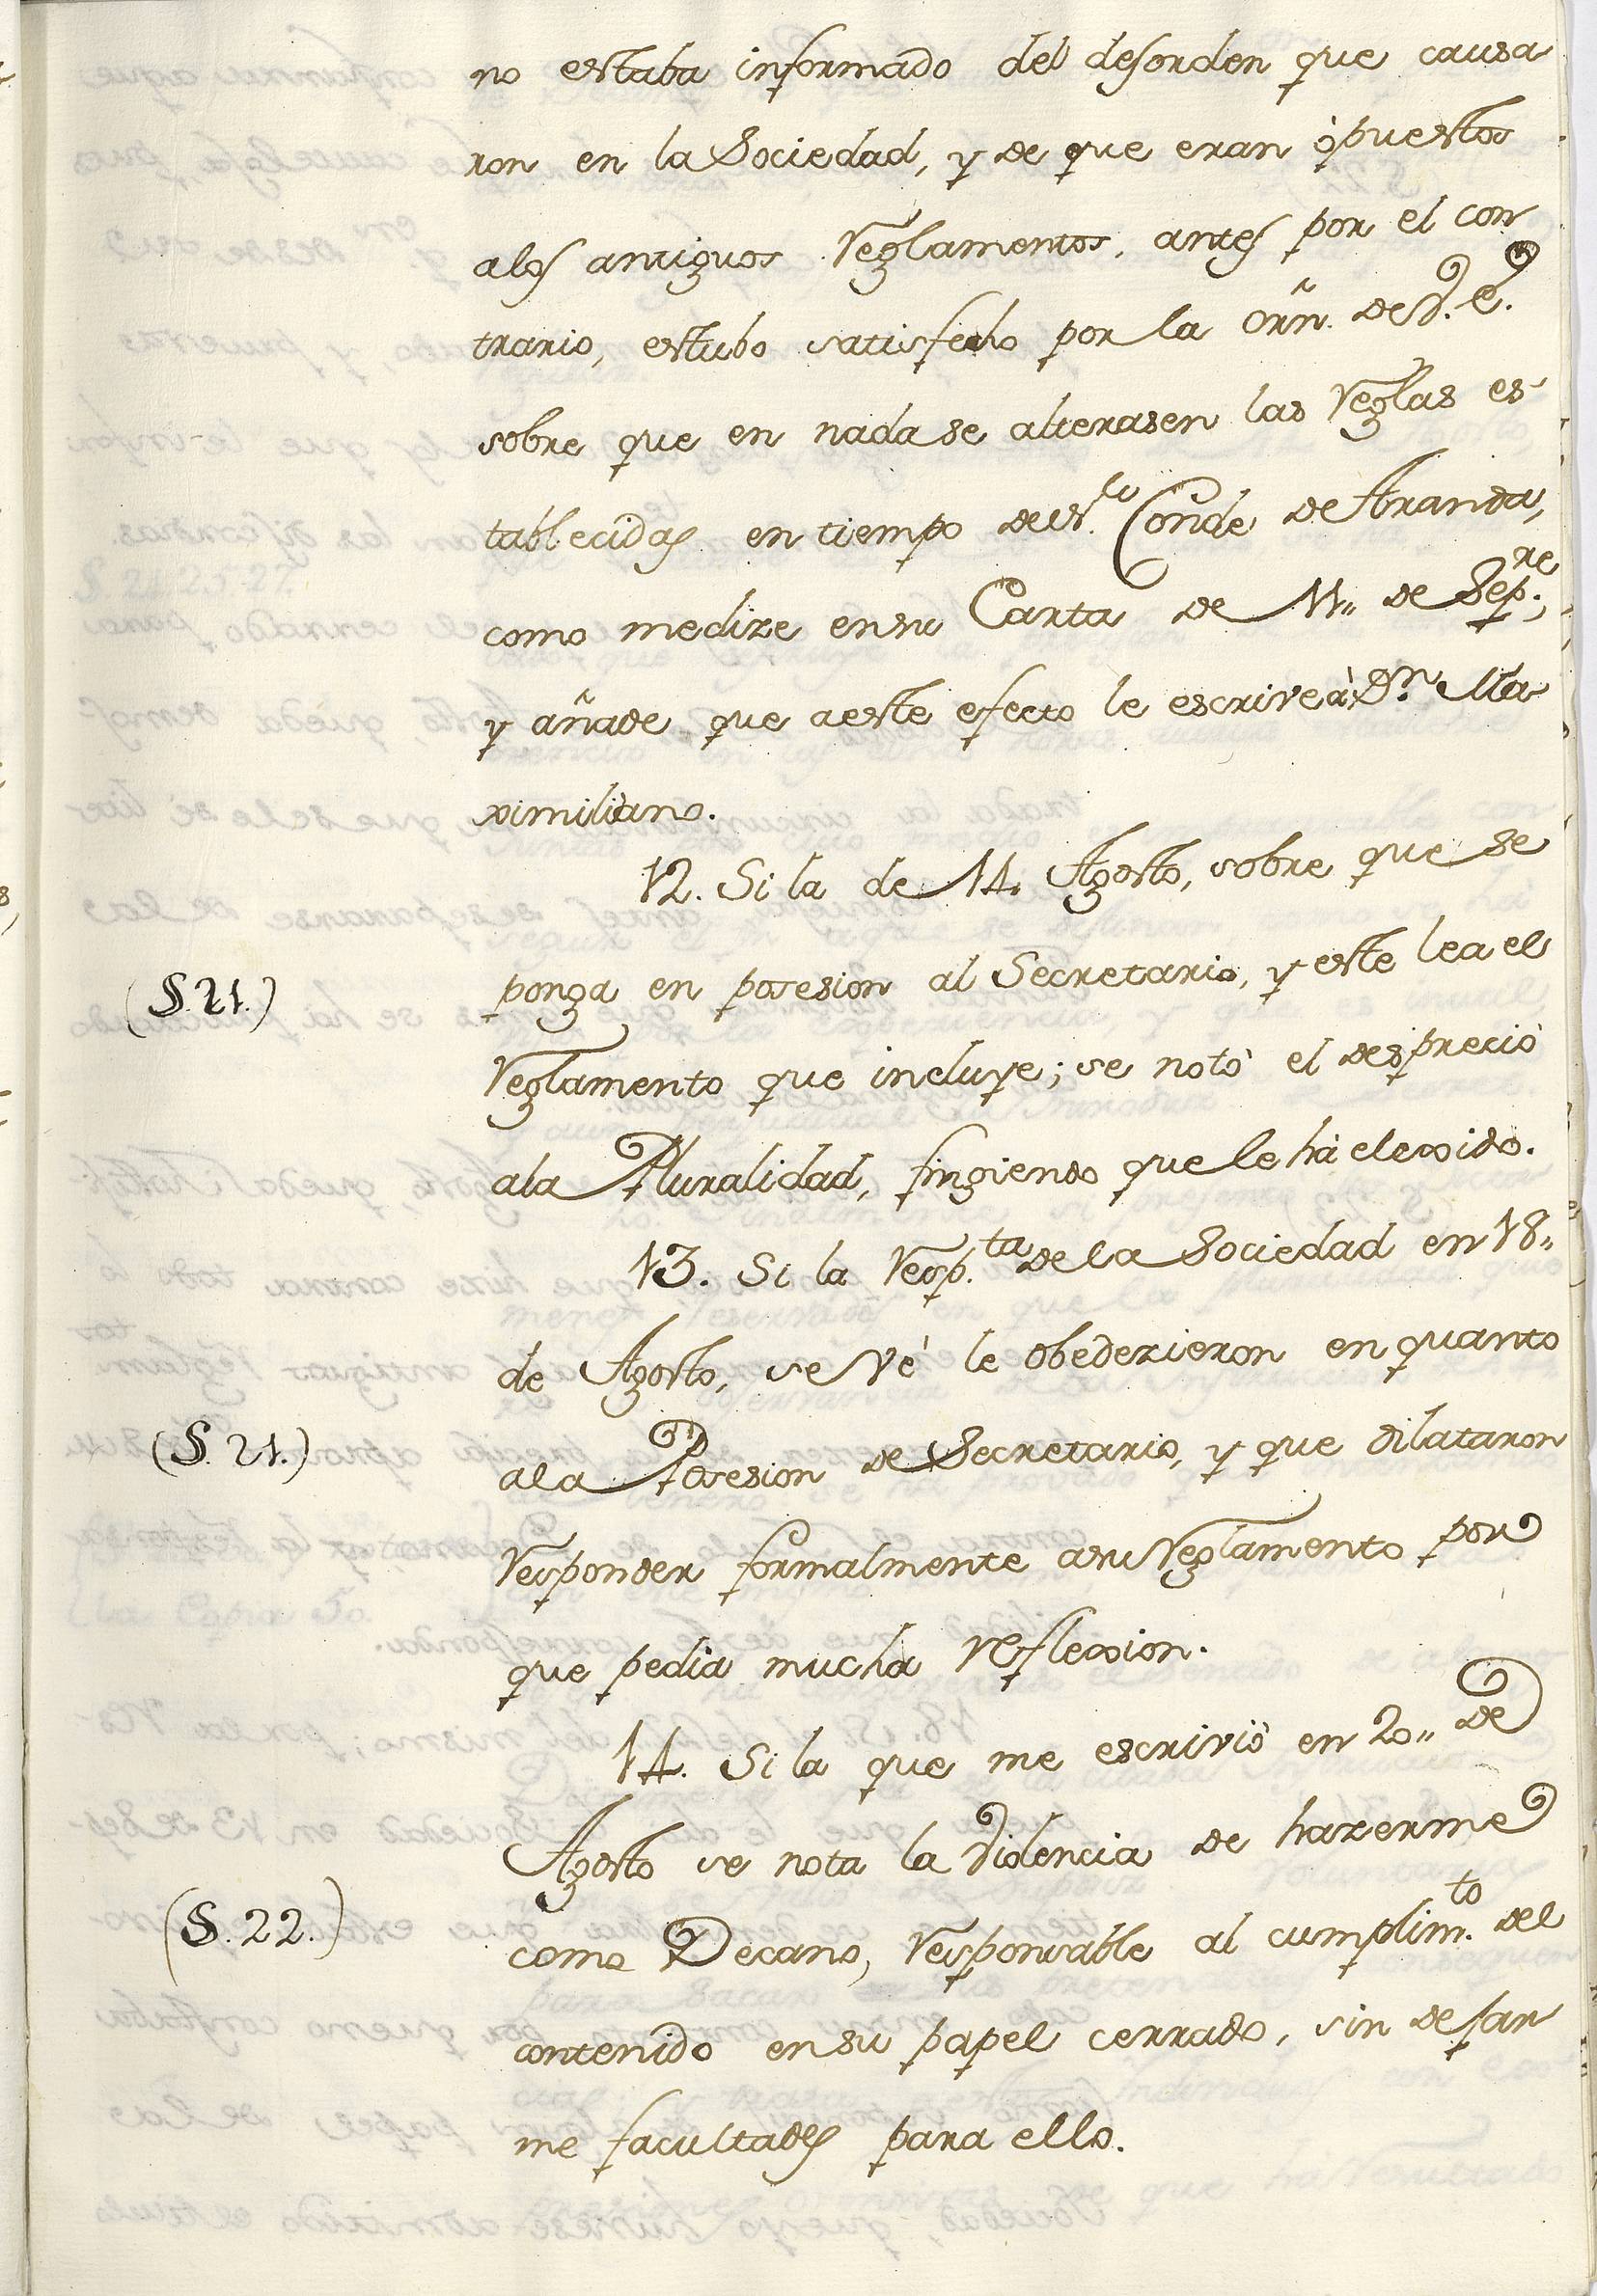 no estaba informado del desorden que causa
ron en la Sociedad, y de que eran òpuestos
alos antiguos Reglamentos, antes por el con
trario, estubo satisfecho por la orñ. de V. E.
sobre que en nada se alterasen las Reglas es
tablecidas en tiempo de el Conde de Aranda,
como medize ensu Carta de 11,, de Sepre,
y añade que aeste efecto le escriveà Dn. Ma
ximiliano.
12. Si la de 14. Agosto, sobre que se
(§. 21.)
ponga en posesion al Secretario, y este lea el
Reglamento que incluye; se notò el desprecio
ala Pluralidad, fingiendo que le hà elexido.
13. Si la Respta. de la Sociedad en 18,,
de Agosto, se vè le obedezieron en quanto
(§. 21.)
ala Posesion de Secretario, y que dilataron
Responder formalmente asu Reglamento por
que pedia mucha Reflexion.
14. Si la que me escriviò en 20,, de
Agosto se nota la violencia de hazerme
(§. 22.)
como Decano, Responsable al cumplimto. del
contenido ensu papel cerrado, sin dejar
me facultades para ello.